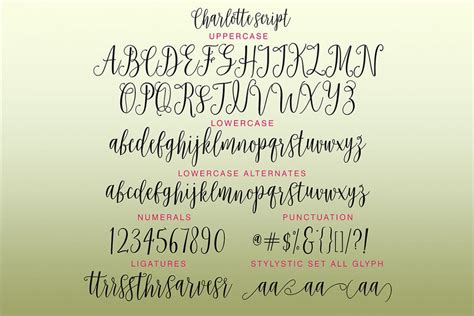 Charlotte script
UPPERCASE
ABCDEFGHIJKLMN
OPQRSTUVWXYZ
LOWERCASE
abcdefghijklmnopqrstuvwxyz
LOWERCASE ALTERNATES
abcdefghijklmnopqrstuvwxyz
NUMERALS
PUNCTUATION
1234567890
@#$%&{}()/?!
LIGATURES
STYLYSTIC SET ALL GLYPH
aa aa aa